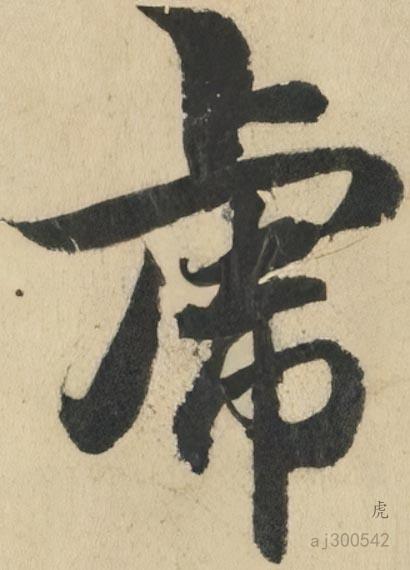 虎
虎
aj300542